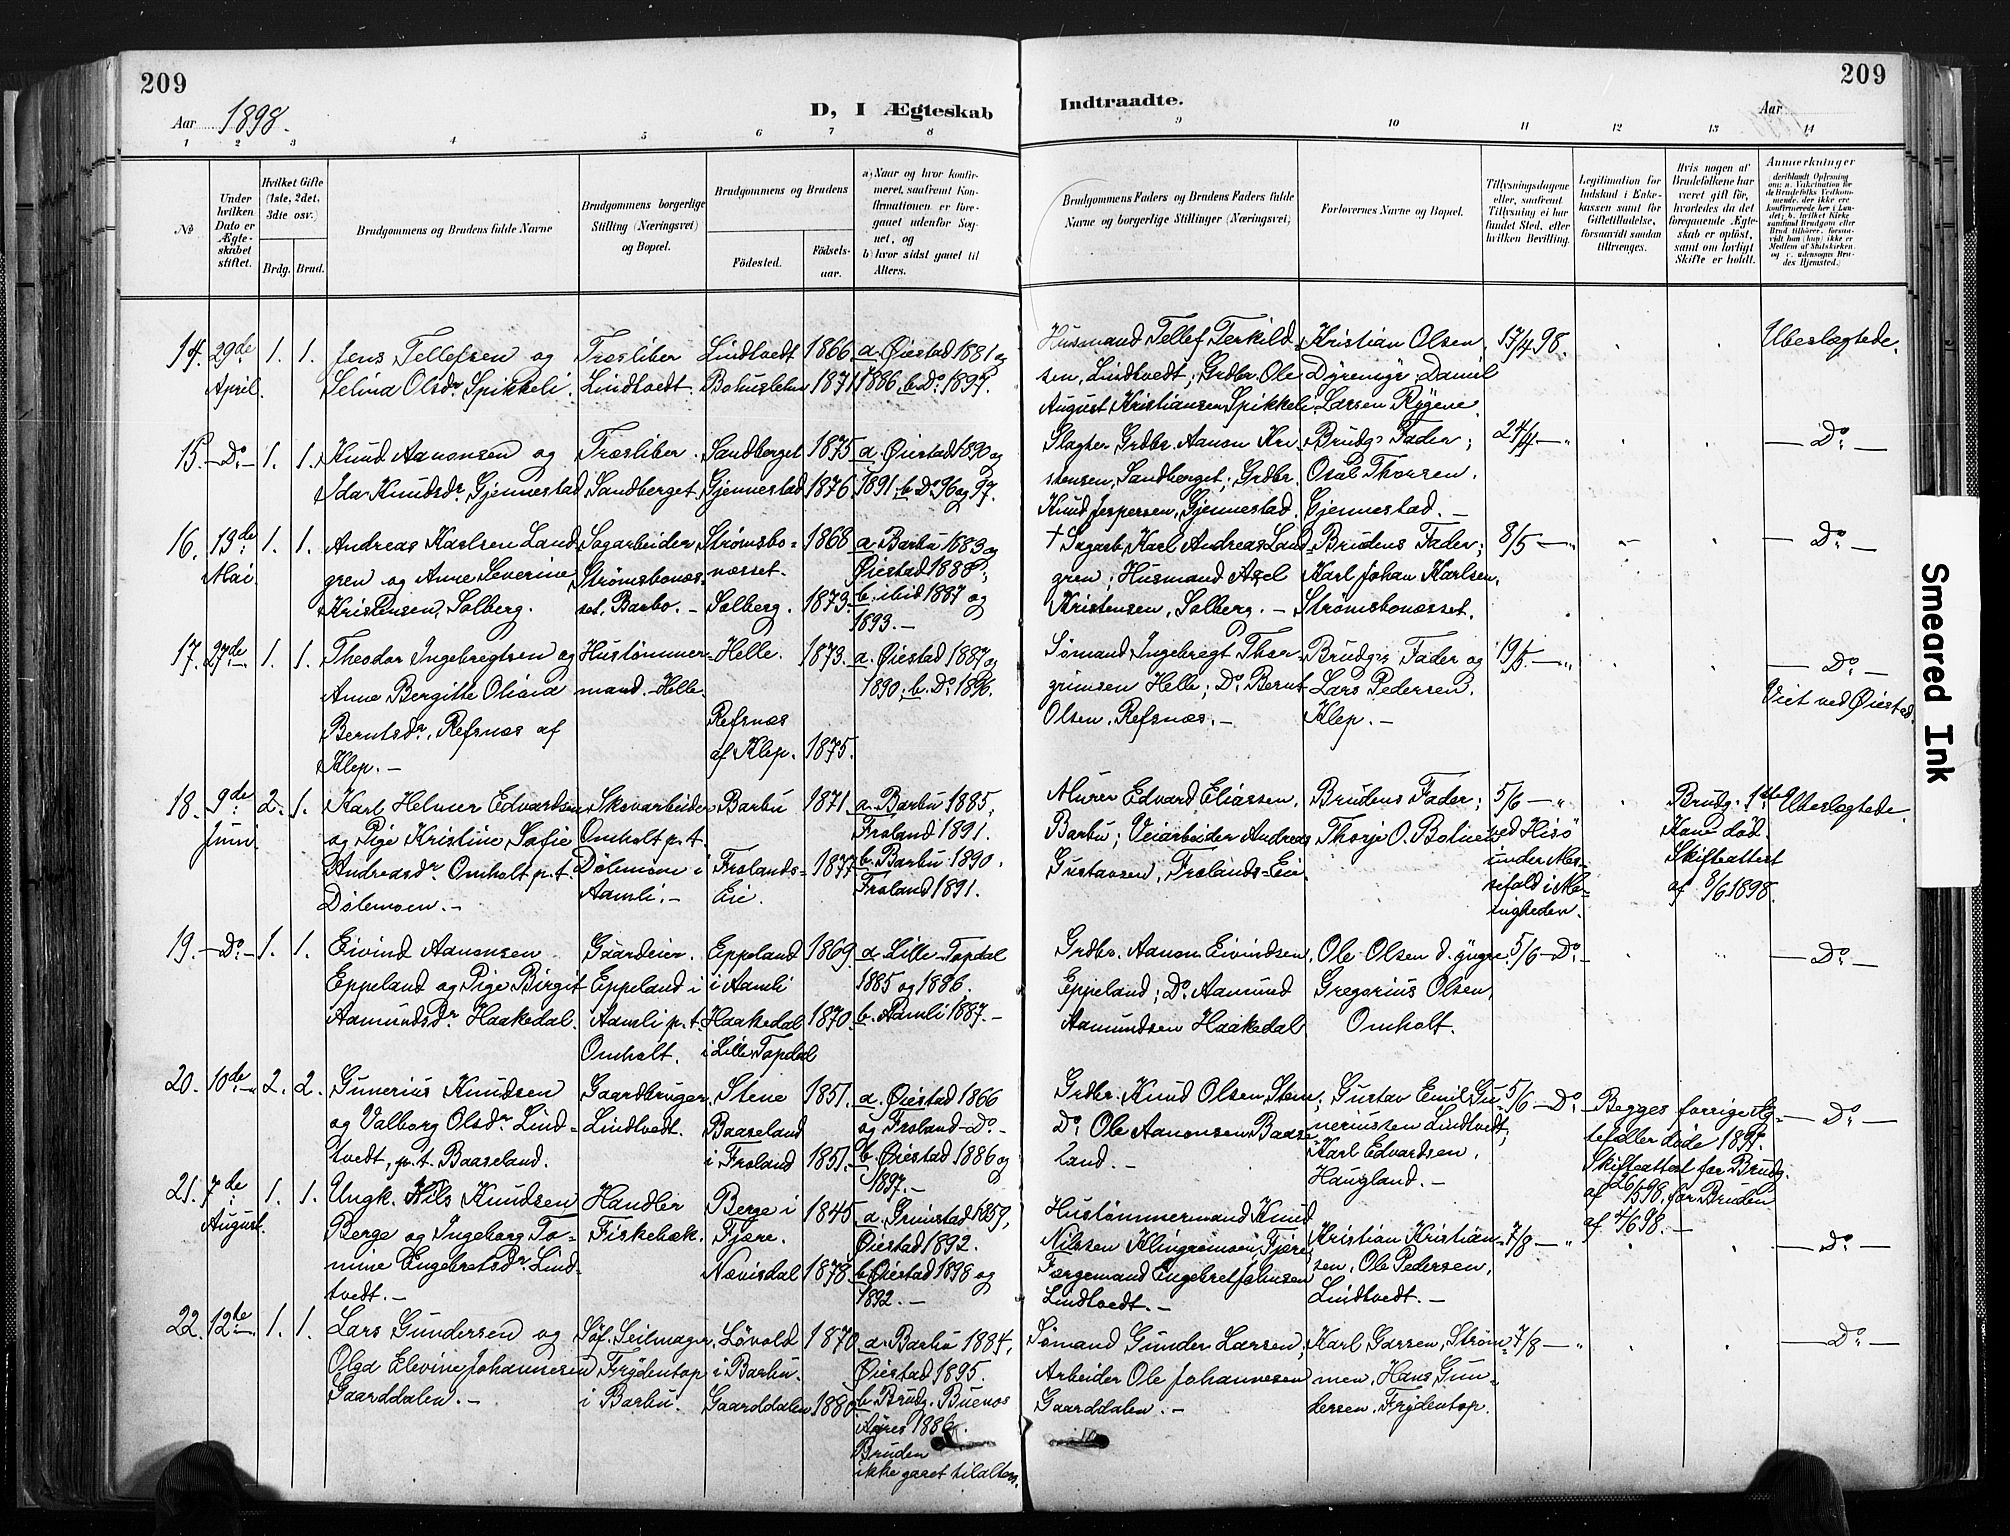 209
209
Aar 1898.
D, I Ægteskab
Indtraadte.
Aar
1 2 3 4 5 6 7 8 9 10 11 12 13 14
No
Under hvilken Dato er Ægteskabet stiftet.
Hvilket Gifte (1ste, 2det, 3die osv.)
Brdg. Brud.
Brudgommens og Brudens fulde Navne
Brudgommens borgerlige Stilling (Næringsvei) og Bopæl.
Brudgommens og Brudens
Fødested.
Fødselsaar.
a) Naar og hvor konfirmeret, saafremt Konfirmationen er foregaaet udenfor Sognet, og
b) hvor sidst gaaet til Alters.
Brudgommens Faders og Brudens Faders fulde Navne og borgerlige Stillinger (Næringsvei)
Forlovernes Navne og Bopæl.
Tillysningsdagene eller, saafremt Tillysning ei har fundet Sted, efter hvilken Bevilling.
Legitimation for Indskud i Enkekassen samt for Giftetilladelse, forsaavidt saadan tiltrænges.
Hvis nogen af Brudefolkene har været gift før, hvorledes da det foregaaende Ægteskab er opløst, samt om lovligt Skifte er holdt.
Anmærkninger
14. 29de April. 1. 1.
Jens Tellefsen og
Selina Olsdr. Spikkeli.
Træsliber
Lindtvedt.
Lindtvedt 1866
Bohuslehn 1871
a. Øiestad 1881 og
1886. b. Do. 1897.
Husmand Tellef Terkild-
sen, Lindtvedt; Grdbr. Ole
August Kristiansen Spikkeli
Kristian Olsen
Dyremyr; Daniel
Larsen Rygene.
17/4 98.
Ubeslægtede.
15. — Do. — 1. 1.
Knud Aanonsen og
Ida Knudsdr. Gjennestad
Træsliber.
Sandberget.
Sandberget 1875
Gjennestad 1876
a. Øiestad 1890 og
1891. b. Do. 96 og 97.
Slagter Grdbr. Aanon Kri-
stensen, Sandberget; Grdbr.
Knud Jespersen, Gjennestad.
Brudg.s Fader;
Osal Thorsen.
Gjennestad. —
24/4 — "
— Do. —
16. 13de Mai. 1. 1.
Andreas Karlsen Land-
gren og Anne Severine
Kristensen, Solberg.
Sagarbeider
Strømsbonæs-
set. Barbo. —
Strømsbo-
næsset. 1868
Solberg. 1873
a. Barbu 1883 og
Øiestad 1888;
b. ibid 1887 og
1893. —
† Sagarb. Karl Andreas Land-
gren; Husmand Axel
Kristensen, Solberg. —
Brudens Fader;
Karl Johan Karlsen,
Strømsbonæsset.
8/5 — "
— Do. —
17. 27de — 1. 1.
Theodor Ingebregtsen og
Anne Bergitte Oliana
Berntsdr. Refsnæs af
Klep. —
Hustømmer-
mand. Helle.
Helle. 1873.
Refsnæs
af Klep. 1875.
a. Øiestad 1887 og
1890. b. Do. 1896.
Sømand Ingebregt Thor-
grimsen Helle; Do. Bernt
Olsen, Refsnæs. —
Brudg.s Fader og
Lars Pedersen.
Klep. —
19/5 — "
— Do. —
Viet ved Øiestad.
18. 9de Juni. 2. 1.
Karl Helmer Edvardsen
og Pige Kristine Sofie
Andreasdr. Omholt p.t.
Dølemoen. —
Skovarbeider
Omholt p.t.
Dølemoen i
Aamli. —
Barbu 1871.
Frolands-
Eie. 1877
a. Barbu 1885.
Froland 1891.
b. Barbu 1890.
Froland 1891.
Murer Edvard Eliassen,
Barbu; Veiarbeider Andreas
Gustavsen, Frolands-Eie.
Brudens Fader;
Thorje O. Bolnes
5/6 — "
ved Hisø
under Mes-
sefald i Me-
nigheden.
Brudg. 1ste
Kone død.
Skifteattest
af 8/6 1898.
Ubeslægtede.
19. — Do. — 1. 1.
Eivind Aanonsen
Eppeland og Pige Birgit
Aamundsdr. Haakedal.
Gaardeier.
Eppeland i
Aamli p.t.
Omholt.
Eppeland 1869.
i Aamli
Haakedal 1870
i Lille Topdal
a. Lille-Topdal
1885 og 1886.
b. Aamli 1887. —
Grdbr. Aanon Eivindsen,
Eppeland; Do. Aamund
Aamundsen Haakedal
Ole Olsen d. yngre.
Gregorius Olsen,
Omholt.
5/6 — Do.
— Do. —
20. 10de — 2. 2.
Gunerius Knudsen
og Valborg Olsdr. Lind-
tvedt, p.t. Baaseland.
Gaardbruger.
Lindtvedt.
Stene 1851.
Baaseland
i Froland 1851.
a. Øiestad 1866
og Froland Do. —
b. Øiestad 1886 og
1897. —
Grdbr. Knud Olsen Stene;
Do. Ole Aanonsen Baase-
land. —
Gustav Emil Gu-
neriussen Lindtvedt;
Karl Edvardsen,
Haugland. —
5/6 — Do.
Begges forrige Æg-
tefæller døde 1897.
Skifteattest for Brudg.
af 26/5 98, for Bruden
af 4/6 98. —
— Do. —
21. 7de August. 1. 1.
Ungk. Nils Knudsen
Berge og Ingeborg To-
mine Engebretsdr. Lind-
tvedt. —
Handler
Fiskebæk.
Berge i
Fjære. 1845
Nævisdal 1878
a. Grimstad 1859,
Øiestad 1892.
b. Øiestad 1898 og
1892. —
Hustømmermand Knud
Nilssen Klingremoen, Fjære;
Færgemand Engebret Johnsen
Lindtvedt. —
Kristian Kristian-
sen, Ole Pedersen,
Lindtvedt. —
7/8 — "
— Do. —
22. 12te — 1. 1.
Lars Gundersen og
Olga Elevine Johannesen
Gaarddalen. —
Søf. Seilmager
Frydentop
i Barbu.
Løvold 1870
i Barbu.
Gaarddalen 1880
a. Barbu 1884,
Øiestad 1895.
b. Brudg. Buenos
Ayres 1886.
Bruden
ikke gaaet til alters.
Sømand Gunder Larsen;
Arbeider Ole Johannesen
Gaarddalen. —
Karl Larsen, Strøm-
men, Hans Gun-
dersen, Frydentop.
7/8 — "
— Do. —
Smeared Ink